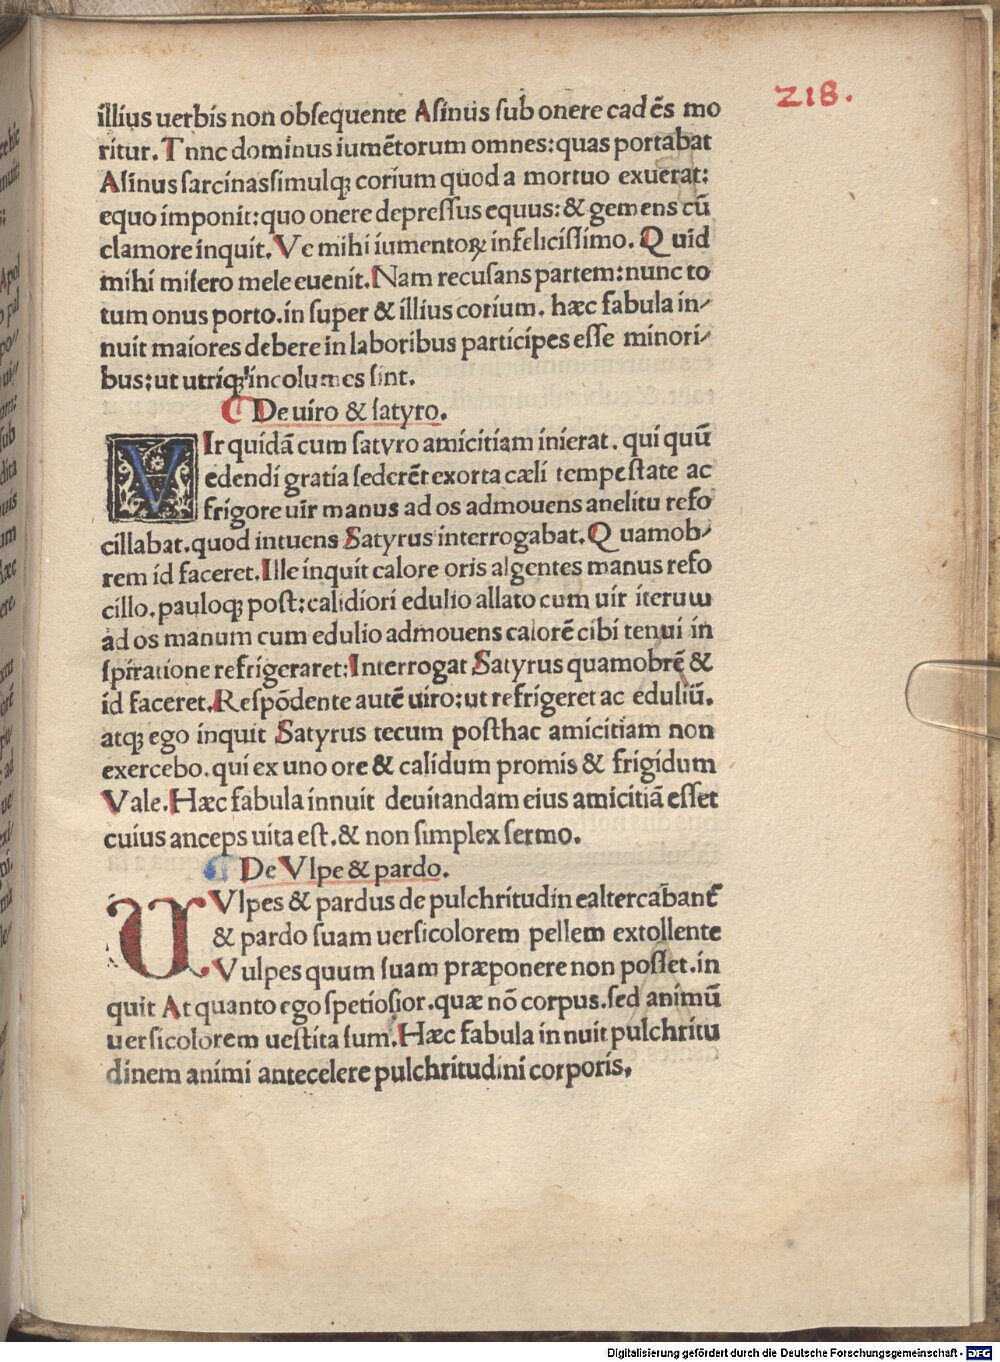 218.
illius uerbis non obsequente Asinus sub onere cadēs mo
ritur. Tnnc dominus iumētorum omnes: quas portabat
Asinus sarcinas simulqꝫ corium quod a mortuo exuerat:
equo imponit: quo onere depressus equus: & gemens cū
clamore inquit. Ve mihi iumentoꝝ infelicissimo. Quid
mihi misero mele euenit. Nam recusans partem: nunc to
tum onus porto. in super & illius corium. hæc fabula in⸗
nuit maiores debere in laboribus participes esse minori⸗
bus: ut utriqꝫ incolumes sint.
De uiro & satyro.
VIr quidā cum satyro amicitiam inierat. qui quū
edendi gratia sederēt exorta cæli tempestate ac
frigore uir manus ad os admouens anelitu refo
cillabat. quod intuens Satyrus interrogabat. Quamob⸗
rem id faceret. Ille inquit calore oris algentes manus refo
cillo. pauloqꝫ post: calidiori edulio allato cum uir iterum
ad os manum cum edulio admouens calorē cibi tenui in
spiratione refrigeraret: Interrogat Satyrus quamobrē &
id faceret. Respōdente autē uiro: ut refrigeret ac eduliū.
atqꝫ ego inquit Satyrus tecum posthac amicitiam non
exercebo. qui ex uno ore & calidum promis & frigidum
Vale. Hæc fabula innuit deuitandam eius amicitiā esset
cuius anceps uita est. & non simplex sermo.
De Vlpe & pardo.
VVlpes & pardus de pulchritudine altercabant᷑
& pardo suam uersicolorem pellem extollente
Vulpes quum suam præponere non posset. in
quit At quanto ego spetiosior. quæ nō corpus. sed animū
uersicolorem uestita sum. Hæc fabula innuit pulchritu
dinem animi antecelere pulchritudini corporis.
Digitalisierung gefördert durch die Deutsche Forschungsgemeinschaft - DFG